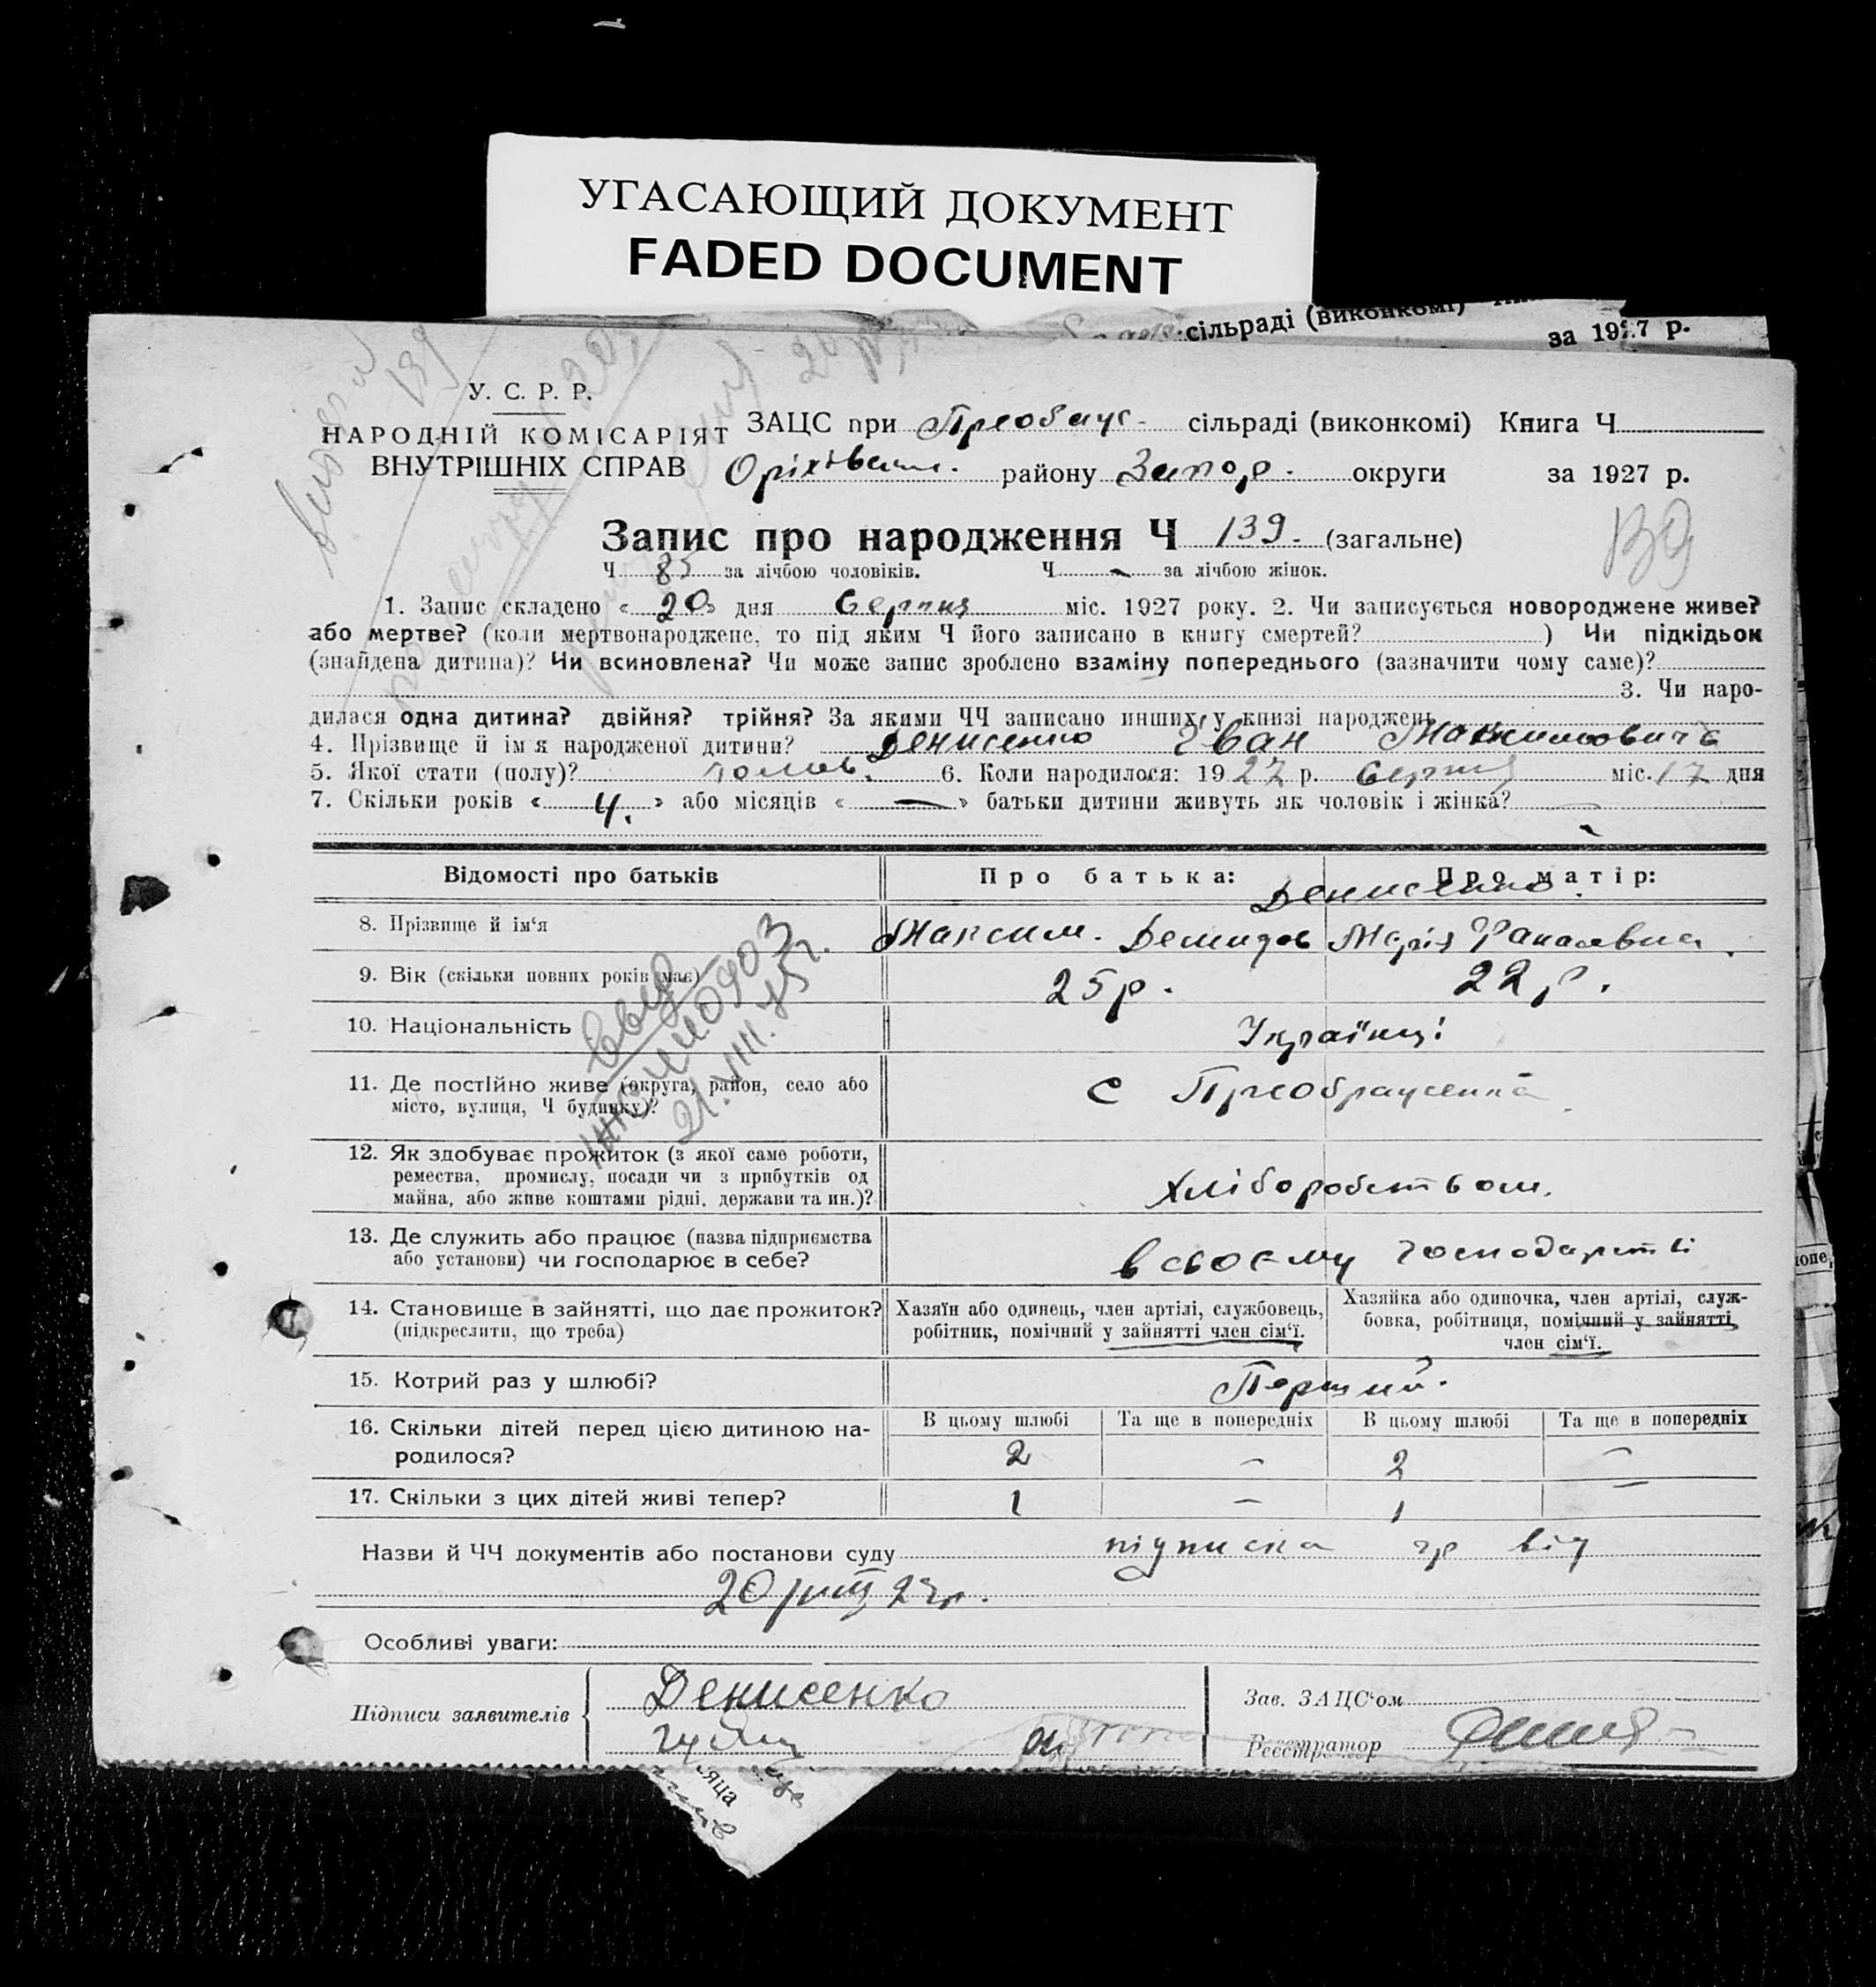 УГАСАЮЩИЙ ДОКУМЕНТ
FADED DOCUMENT
сільраді (виконкомі)
за 1927 р.
У. С. Р. Р.
НАРОДНІЙ КОМІСАРІЯТ
ВНУТРІШНІХ СПРАВ
ЗАЦС при Преобауг- сільраді (виконкомі) Книга Ч
Оріхівськ. району Запор. округи за 1927 р.
Запис про народження Ч 139. (загальне)
139
Ч 85 за лічбою чоловіків. Ч - за лічбою жінок.
1. Запис складено « 20 » дня Серпня міс. 1927 року. 2. Чи записується новороджене живе?
або мертве? (коли мертвонароджене, то під яким Ч його записано в книгу смертей? ) Чи підкідьок
(знайдена дитина)? Чи всиновлена? Чи може запис зроблено взаміну попереднього (зазначити чому саме)?
3. Чи наро-
дилася одна дитина? двійня? трійня? За якими ЧЧ записано инших у книзі народжень
4. Прізвище й ім'я народженої дитини? Денисенко Іван Максимович
5. Якої стати (полу)? чолов. 6. Коли народилося: 1927 р. Серпня міс. 17 дня
7. Скільки років « 4. » або місяців « — » батьки дитини живуть як чоловік і жінка?
Відомості про батьків
Про батька:
Про матір:
Денисенко
8. Прізвище й ім'я
Максим. Демидов
Марія
9. Вік (скільки повних років має)
25 р.
22 р.
10. Національність
Українці
11. Де постійно живе (округа, район, село або
місто, вулиця, Ч будинку)?
с Преображенка
21.VIII.75 г.
12. Як здобуває прожиток (з якої саме роботи,
ремества, промислу, посади чи з прибутків од
майна, або живе коштами рідні, держави та ин.)?
Хліборобством.
13. Де служить або працює (назва підприємства
або установи) чи господарює в себе?
в своєму господарстві
14. Становище в зайнятті, що дає прожиток?
(підкреслити, що треба)
Хазяїн або одинець, член артілі, службовець,
робітник, помічний у зайнятті член сім'ї.
Хазяйка або одиночка, член артілі, служ-
бовка, робітниця, помічний у зайнятті
член сім'ї.
15. Котрий раз у шлюбі?
Перший.
16. Скільки дітей перед цією дитиною на-
родилося?
В цьому шлюбі Та ще в попередніх В цьому шлюбі Та ще в попередніх
2 - 2 -
17. Скільки з цих дітей живі тепер?
1 - 1 -
Назви й ЧЧ документів або постанови суду підписка гр від
20/VIII 27 р.
Особливі уваги:
Підписи заявителів
Денисенко
Зав. ЗАЦС'ом
Реєстратор